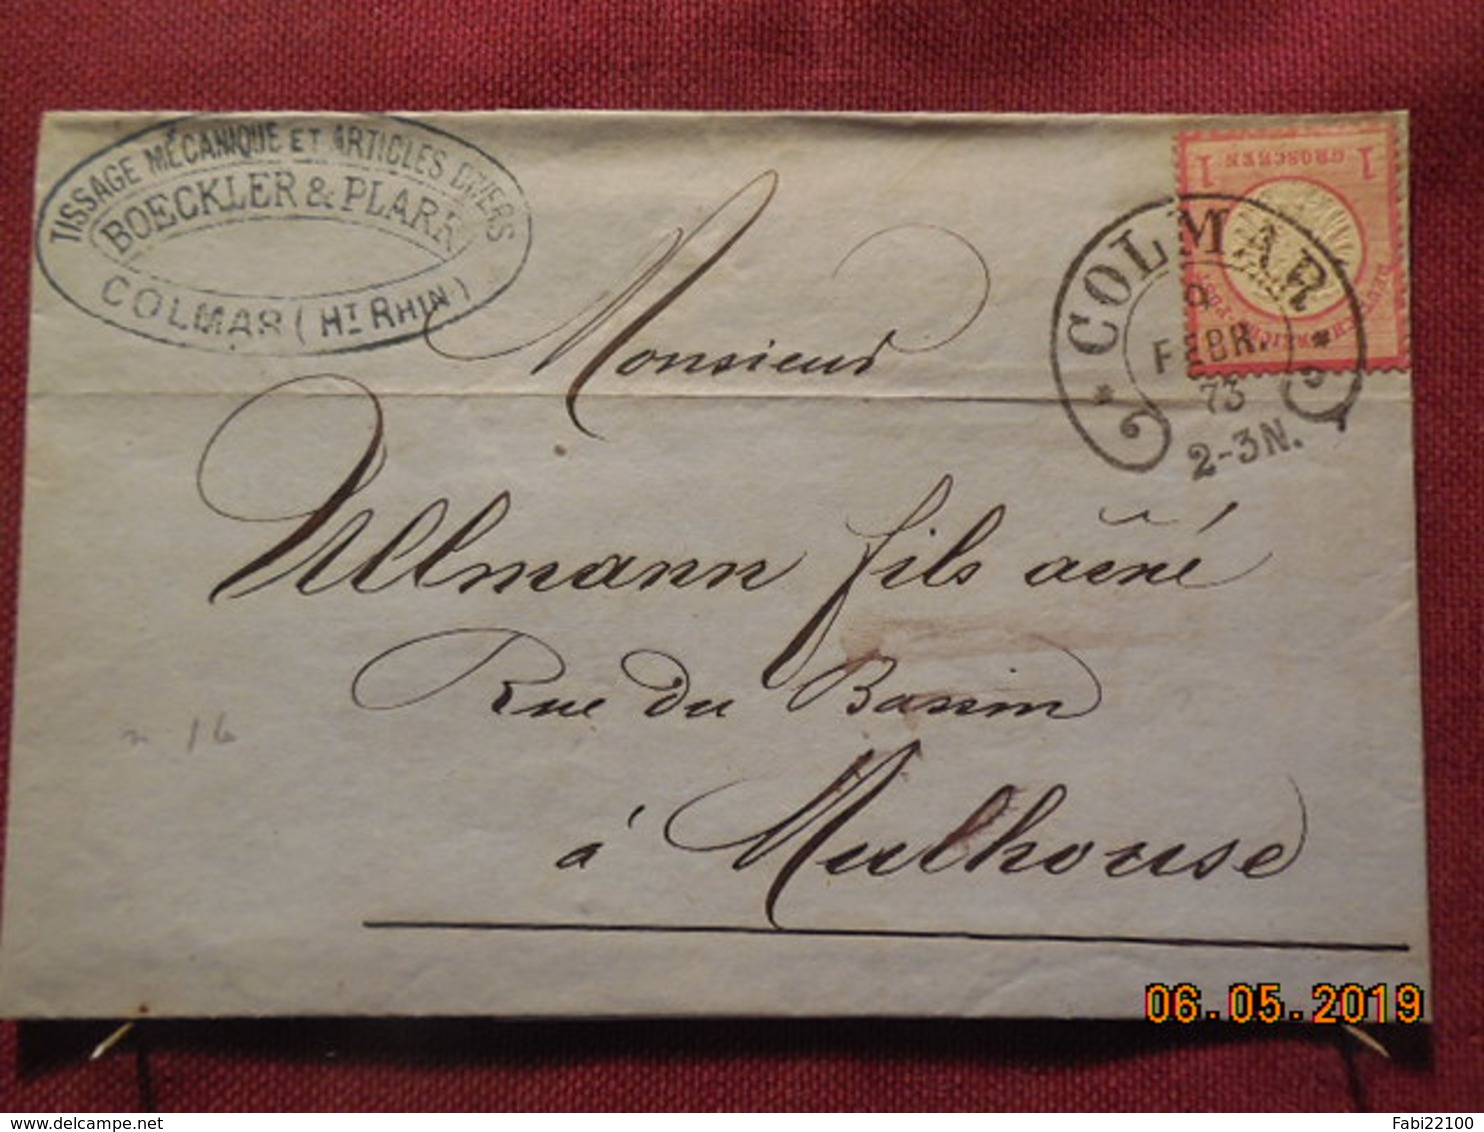 TISSAGE MÉCANIQUE ET ARTICLES DIVERS
BOECKLER & PLARR
COLMAR (HT RHIN)
1 GROSCHEN 1
COLMAR
9
FEBR.
73
2-3N.
Monsieur
Ullmann fils aîné
Rue du Bassin
à Mulhouse
06.05.2019
delcampe.net
Fabi22100